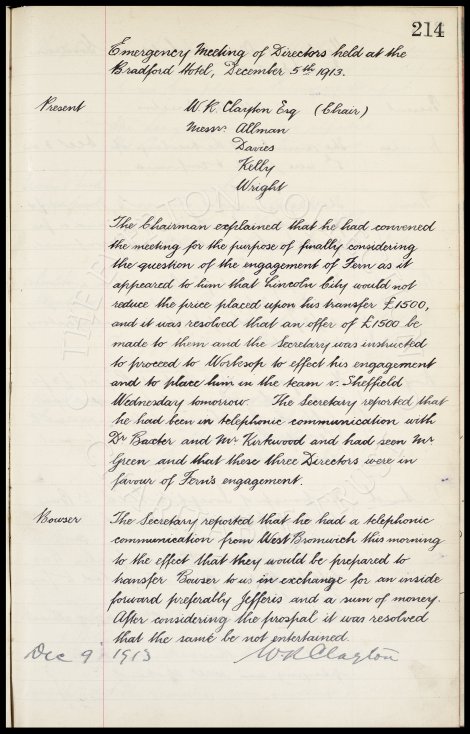 214
Emergency Meeting of Directors held at the
Bradford Hotel, December 5th 1913.
Present
W. R. Clayton Esq (Chair)
Messrs. Allman
Davies
Kelly
Wright
The Chairman explained that he had convened
the meeting for the purpose of finally considering
the question of the engagement of Fern as it
appeared to him that Lincoln City would not
reduce the price placed upon his transfer £1500,
and it was resolved that an offer of £1500 be
made to them and the Secretary was instructed
to proceed to Worksop to effect his engagement
and to place him in the team v. Sheffield
Wednesday tomorrow. The Secretary reported that
he had been in telephonic communication with
Dr Baxter and Mr Kirkwood and had seen Mr
Green and that these three Directors were in
favour of Fern's engagement.
Bowser
The Secretary reported that he had a telephonic
communication from West Bromwich this morning
to the effect that they would be prepared to
transfer Bowser to us in exchange for an inside
forward preferably Jefferis and a sum of money.
After considering the prospal it was resolved
that the same be not entertained
Dec 9 1913 W R Clayton